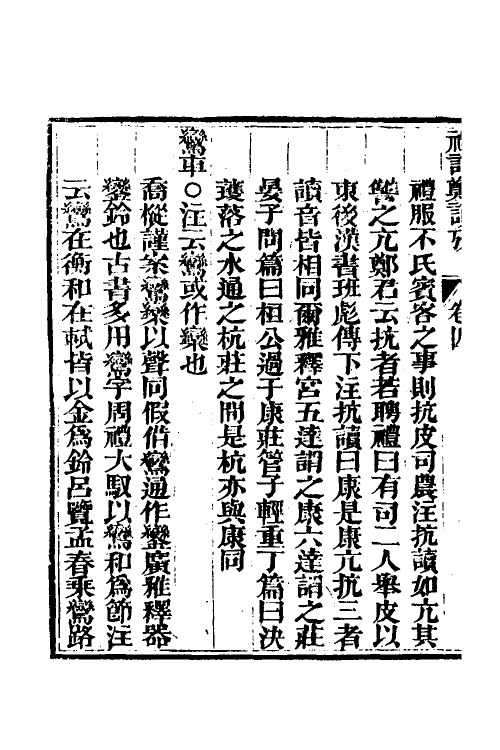 禮記鄭讀攷 卷四
禮服不氏賓客之事則抗皮司農注抗讀如亢其
讎之亢鄭君云抗者若聘禮曰有司二人舉皮以
東後漢書班彪傳下注抗讀曰康是康亢抗三者
讀音皆相同爾雅釋宮五達謂之康六達謂之莊
晏子問篇曰桓公過于康莊管子輕重丁篇曰決
蒦洛之水通之杭莊之間是杭亦與康同
鸞車○注云鸞或作欒也
喬樅謹案鸞欒以聲同假借鸞通作鑾廣雅釋器
鑾鈴也古書多用鸞字周禮大馭以鸞和為節注
云鸞在衡和在軾皆以金為鈴呂覽孟春乘鸞路